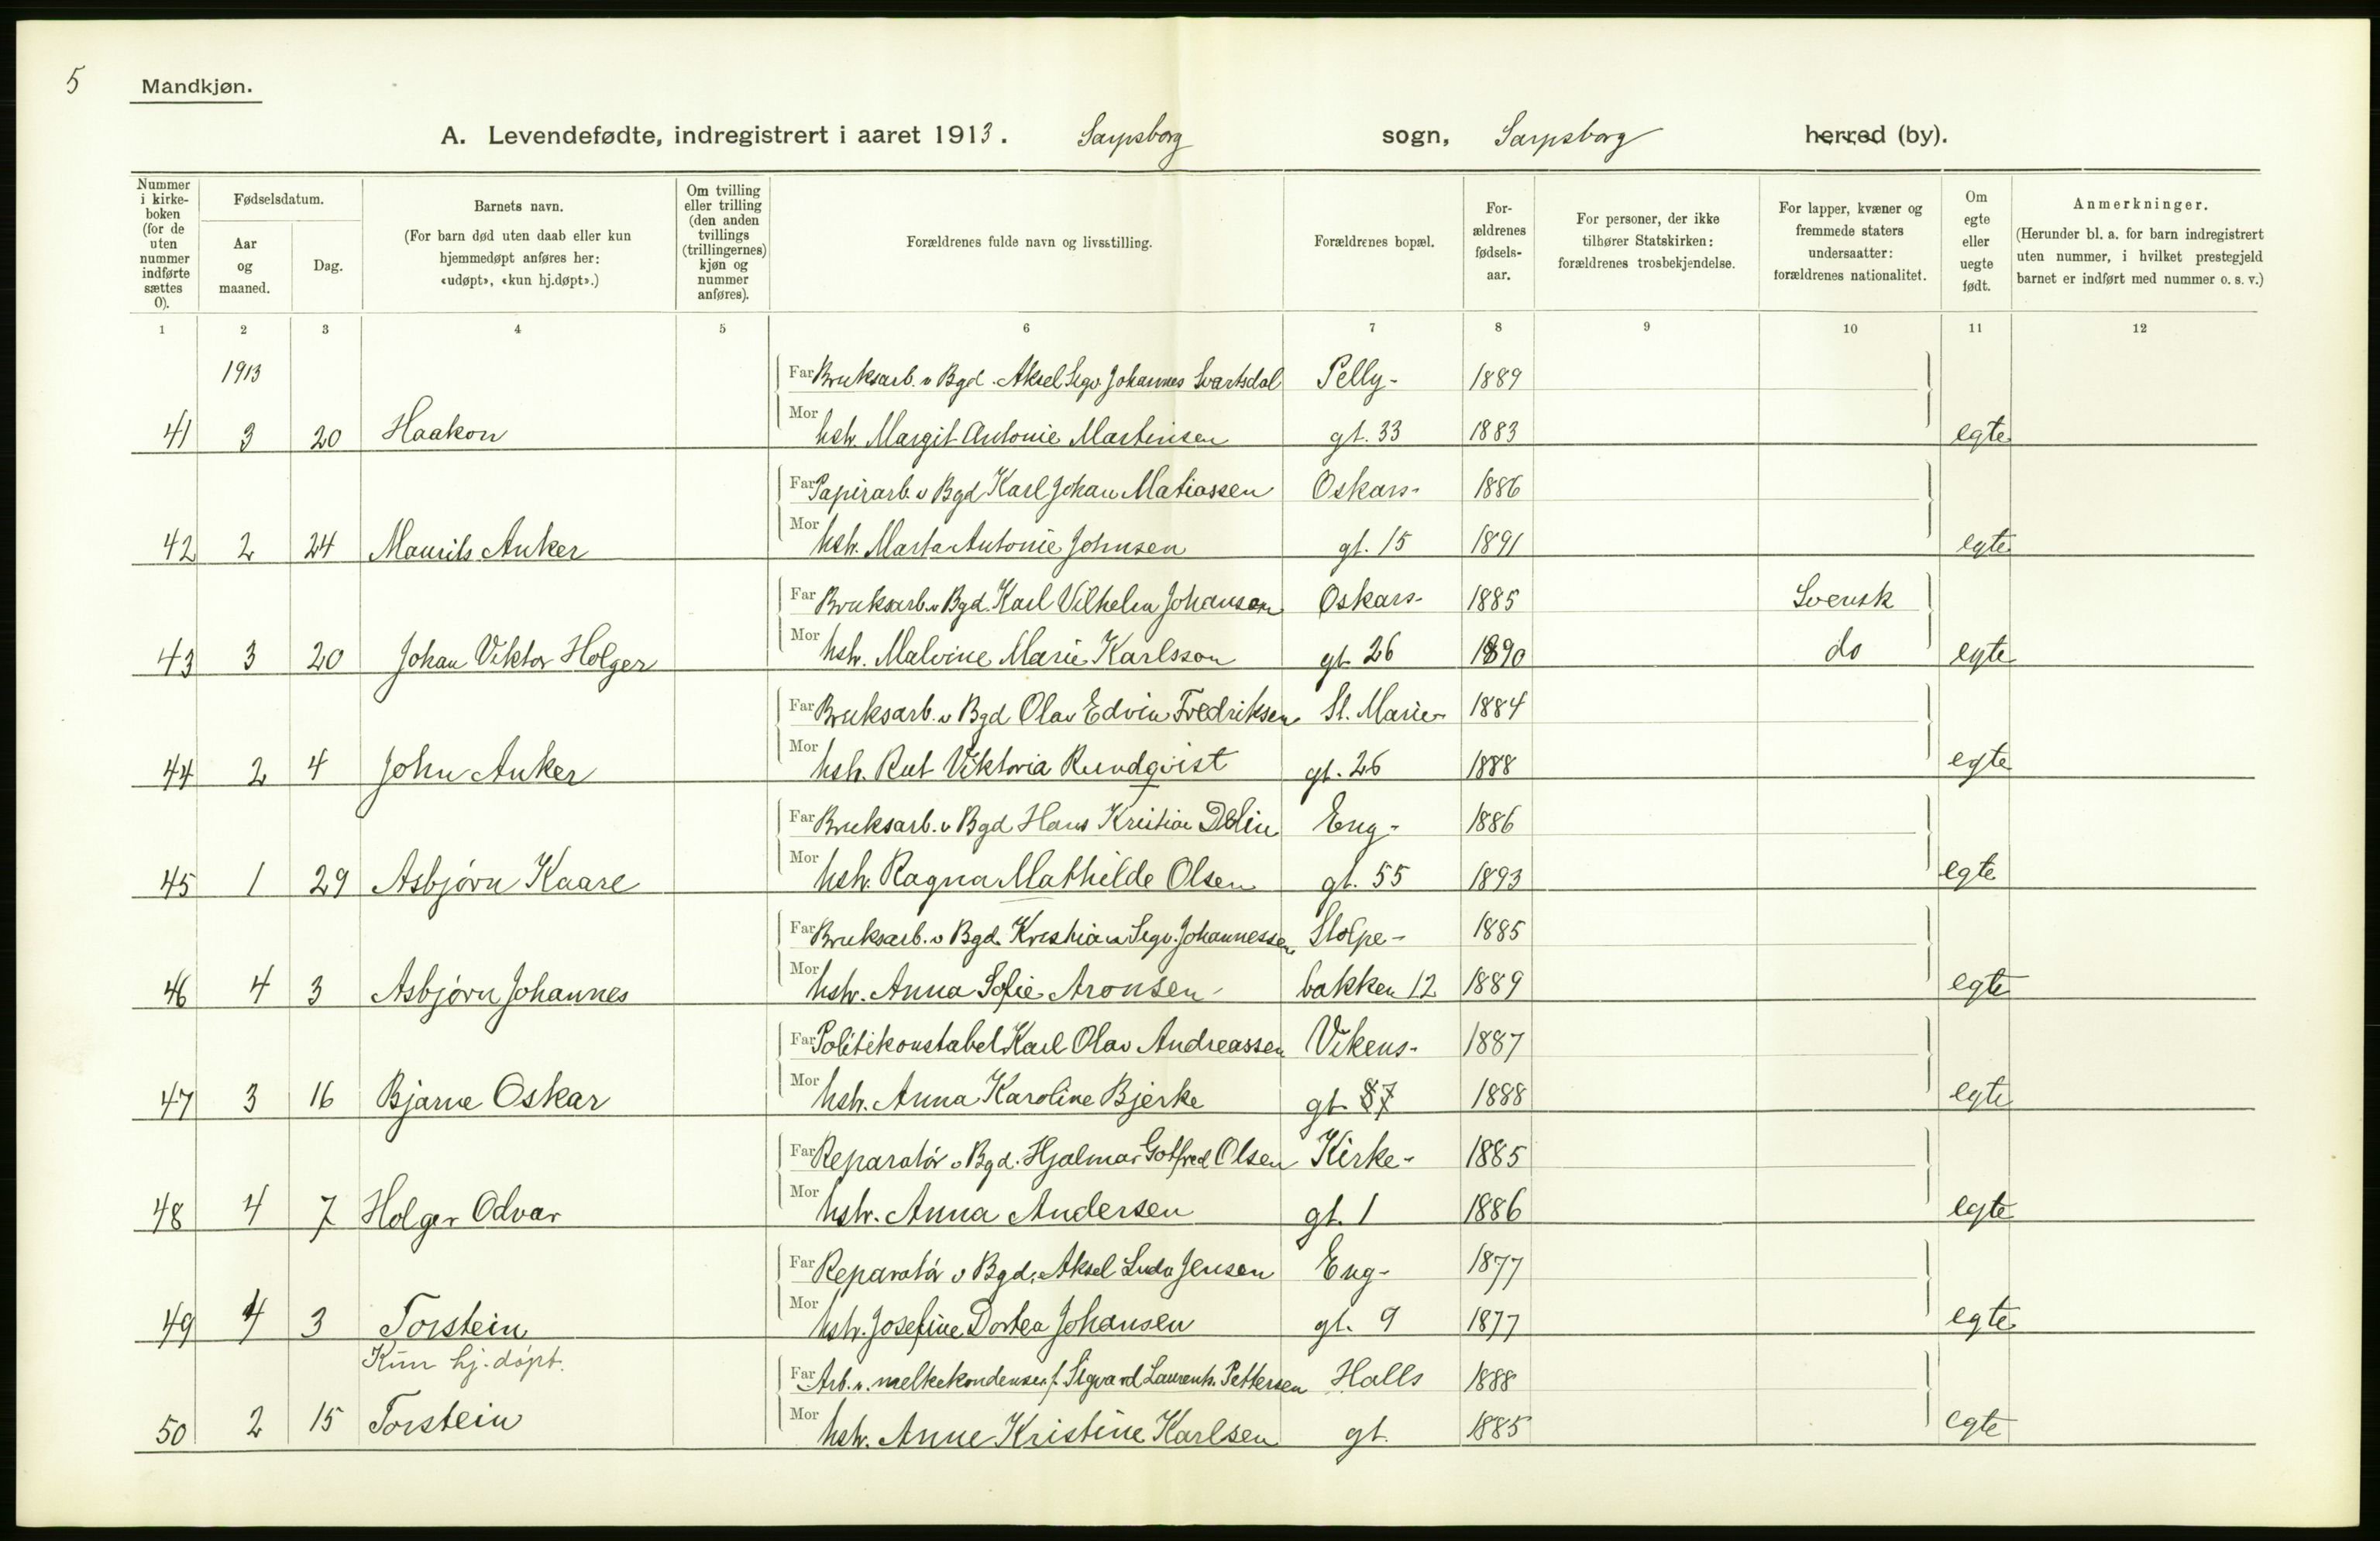 5
Mandkjøn.
A. Levendefødte, indregistrert i aaret 1913. Sarpsborg sogn, Sarpsborg herred (by).
Nummer i kirke-boken (for de uten nummer indførte sættes 0).
Fødselsdatum.
Aar og maaned.
Dag.
Barnets navn.
(For barn død uten daab eller kun hjemmedøpt anføres her: «udøpt», «kun hj.døpt».)
Om tvilling eller trilling (den anden tvillings (trillingernes) kjøn og nummer anføres).
Forældrenes fulde navn og livsstilling.
Forældrenes bopæl.
For-ældrenes fødsels-aar.
For personer, der ikke tilhører Statskirken: forældrenes trosbekjendelse.
For lapper, kvæner og fremmede staters undersaatter: forældrenes nationalitet.
Om egte eller uegte født.
Anmerkninger.
(Herunder bl. a. for barn indregistrert uten nummer, i hvilket prestegjeld barnet er indført med nummer o. s. v.)
1 2 3 4 5 6 7 8 9 10 11 12
1913 Far Bruksarb. v Bgd. Aksel Sigv. Johannes Svartsdal Pelly- 1889
41 3 20 Haakon Mor hstr. Margit Antonie Martinsen gt. 33 1883 egte
Far Papirarb. v Bgd Karl Johan Matiassen Oskars- 1886
42 2 24 Maurits Anker Mor hstr. Marta Antonie Johnsen gt. 15 1891 egte
Far Bruksarb. v Bgd. Karl Vilhelm Johansen Oskars- 1885 Svensk
43 3 20 Johan Viktor Holger Mor hstr. Malvine Marie Karlsson gt. 26 1890 do egte
Far Bruksarb. v Bgd Olav Edvin Fredriksen St. Marie- 1884
44 2 4 John Anker Mor hstr. Rut Viktoria Rundqvist gt. 26 1888 egte
Far Bruksarb. v Bgd Hans Kristian Eng- 1886
45 1 29 Asbjørn Kaare Mor hstr. Ragna Mathilde Olsen gt. 55 1893 egte
Far Bruksarb. v Bgd. Kristian Sigv. Johannessen Stolpe- 1885
46 4 3 Asbjørn Johannes Mor hstr. Anna Sofie Aronsen bakken 12 1889 egte
Far Politikonstabel Karl Olav Andreassen Vikens- 1887
47 3 16 Bjarne Oskar Mor hstr. Anna Karoline Bjerke gt. 87 1888 egte
Far Reparatør v Bgd. Hjalmar Gotfred Olsen Kirke- 1885
48 4 7 Holger Odvar Mor hstr. Anna Andersen gt. 1 1886 egte
Far Reparatør v Bgd. Aksel Ludv Jensen Eng- 1877
49 4 3 Torstein Mor hstr. Josefine Dortea Johansen gt. 9 1877 egte
Kun hj. døpt. Far Arb. v. melkekondenser.f. Sigvard Laurents. Pettersen Halls 1888
50 2 15 Torstein Mor hstr. Anne Kristine Karlsen gt. 1885 egte